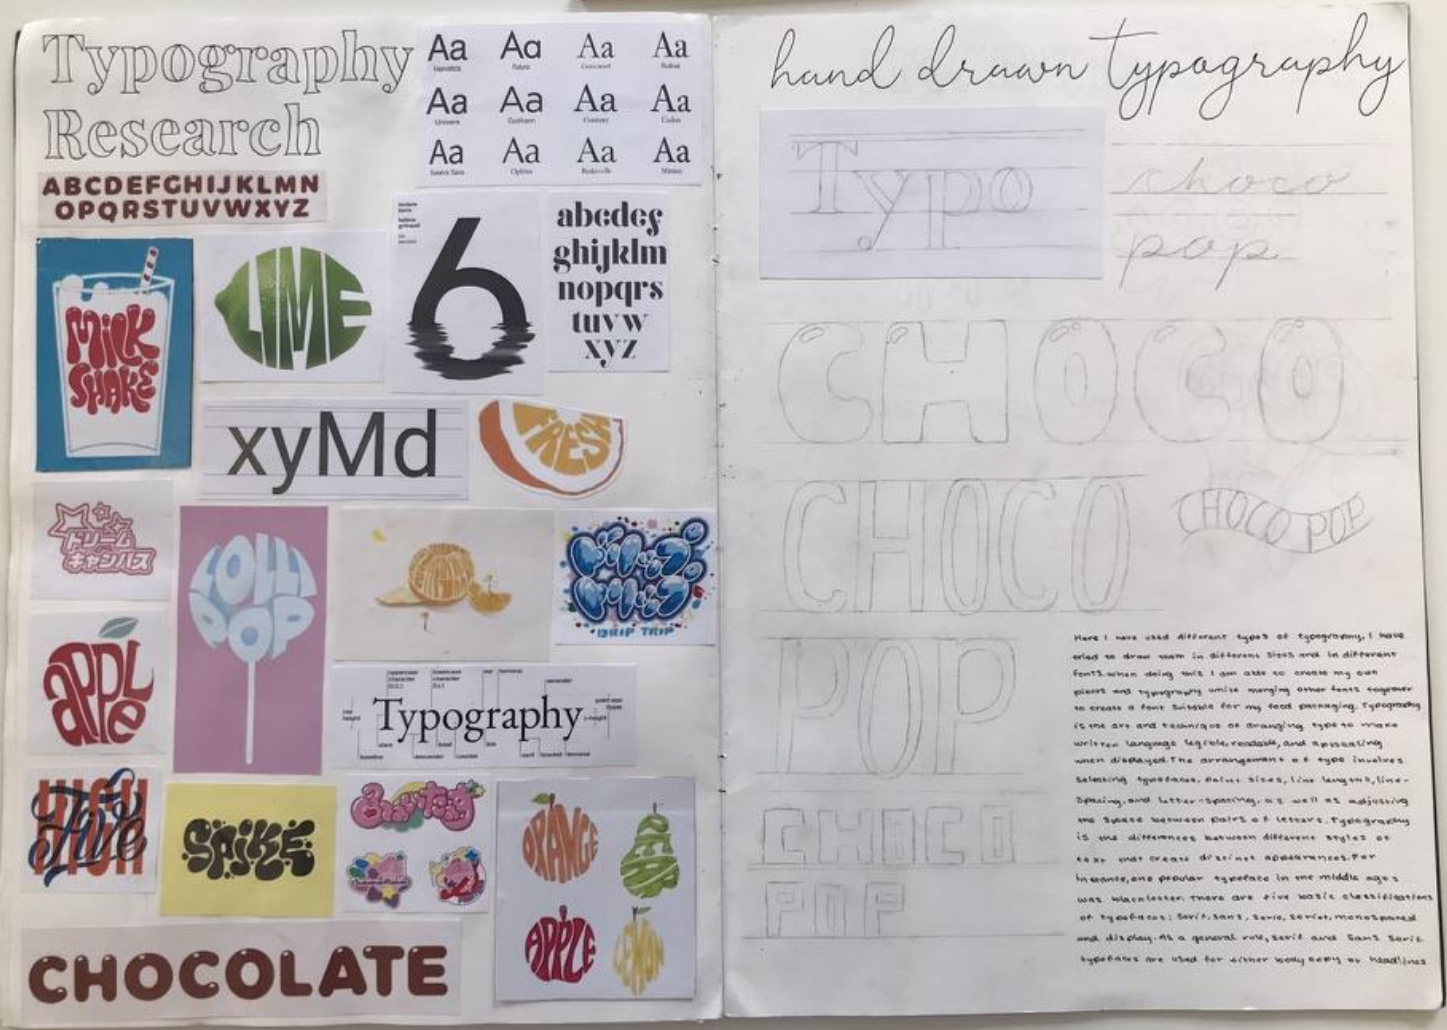 Typography
Research
ABCDEFGHIJKLMN
OPQRSTUVWXYZ
Aa Aa Aa Aa
Helvetica Futura Garamond Bodoni
Aa Aa Aa Aa
Univers Gotham Century
Aa Aa Aa Aa
Optima Baskerville Minion
MILK
SHAKE
LIME
6
abcdef
ghijklm
nopqrs
tuvw
xyz
xyMd
FRESH
ドリーム
キャンバス
LOLLI
POP
ドリップ
トリップ
DRIP TRIP
apple
Typography
uppercase
character
lowercase
character
ear
terminal
ascender
x-height
stem
bowl
baseline
descender
counter
serif
bracket
terminal
HIGH
Five
SPIKE
ORANGE
PEAR
APPLE
LEMON
CHOCOLATE
hand drawn typography
Typo
choco
pop
CHOCO
CHOCO
CHOCO POP
POP
CHOCO
POP
Here I have used different types of typography, I have
tried to draw them in different sizes and in different
fonts. when doing this I am able to create my own
pieces and typography while merging other fonts together
to create a font suitable for my food packaging. Typography
is the art and technique of arranging type to make
written language legible, readable, and appealing
when displayed. The arrangement of type involves
selecting typefaces, point sizes, line lengths, line-
spacing, and letter-spacing, as well as adjusting
the space between pairs of letters. Typography
is the differences between different styles of
text that create distinct appearances. For
instance, one popular typeface in the middle ages
was blackletter. There are five basic classifications
of typefaces: serif, sans, serif, script, monospaced
and display. As a general rule, serif and sans serif
typefaces are used for either body copy or headlines